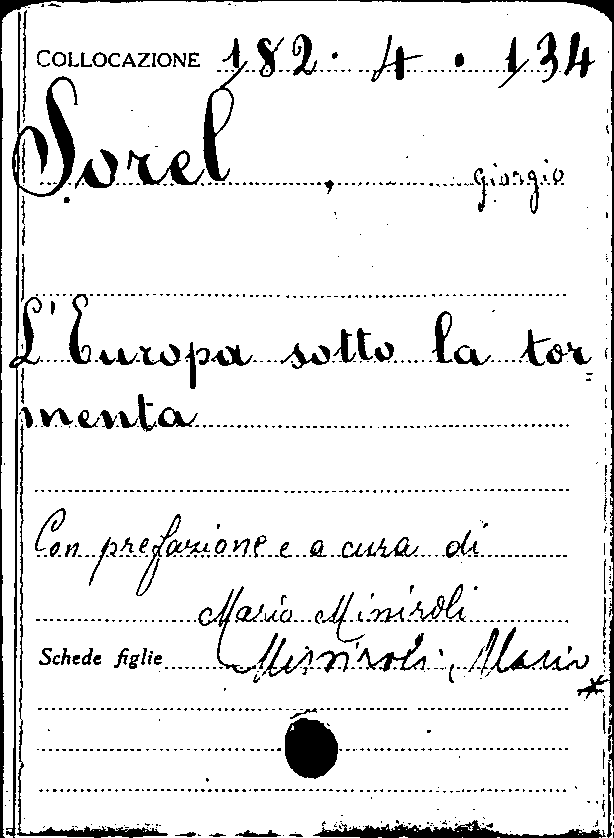 COLLOCAZIONE 182. 4. 134
Sorel, Giorgio
L'Europa sotto la tor=
menta
Con prefazione e a cura di
Mario Miniroli
Schede figlie Miniroli, Mario *